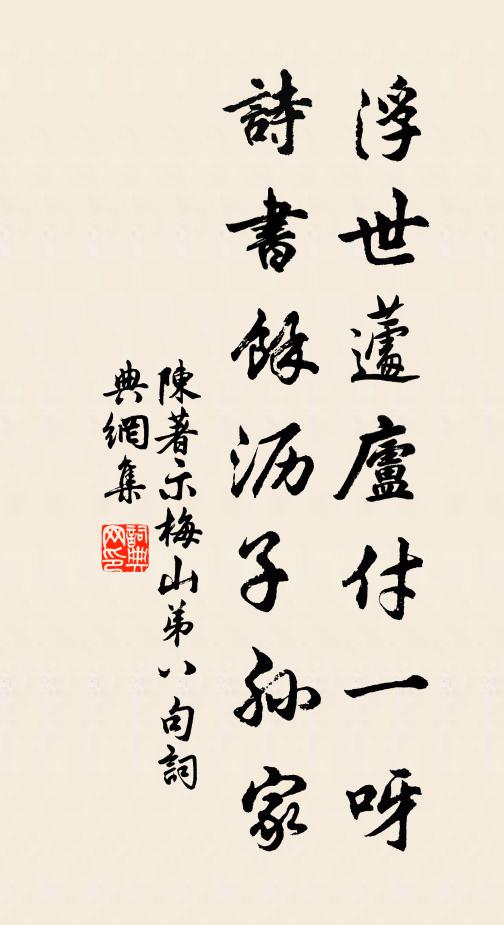 浮世蘧廬付一呀
詩書餘沥子孙家
陳著示梅山弟八句詞
典網集
詞典
网印